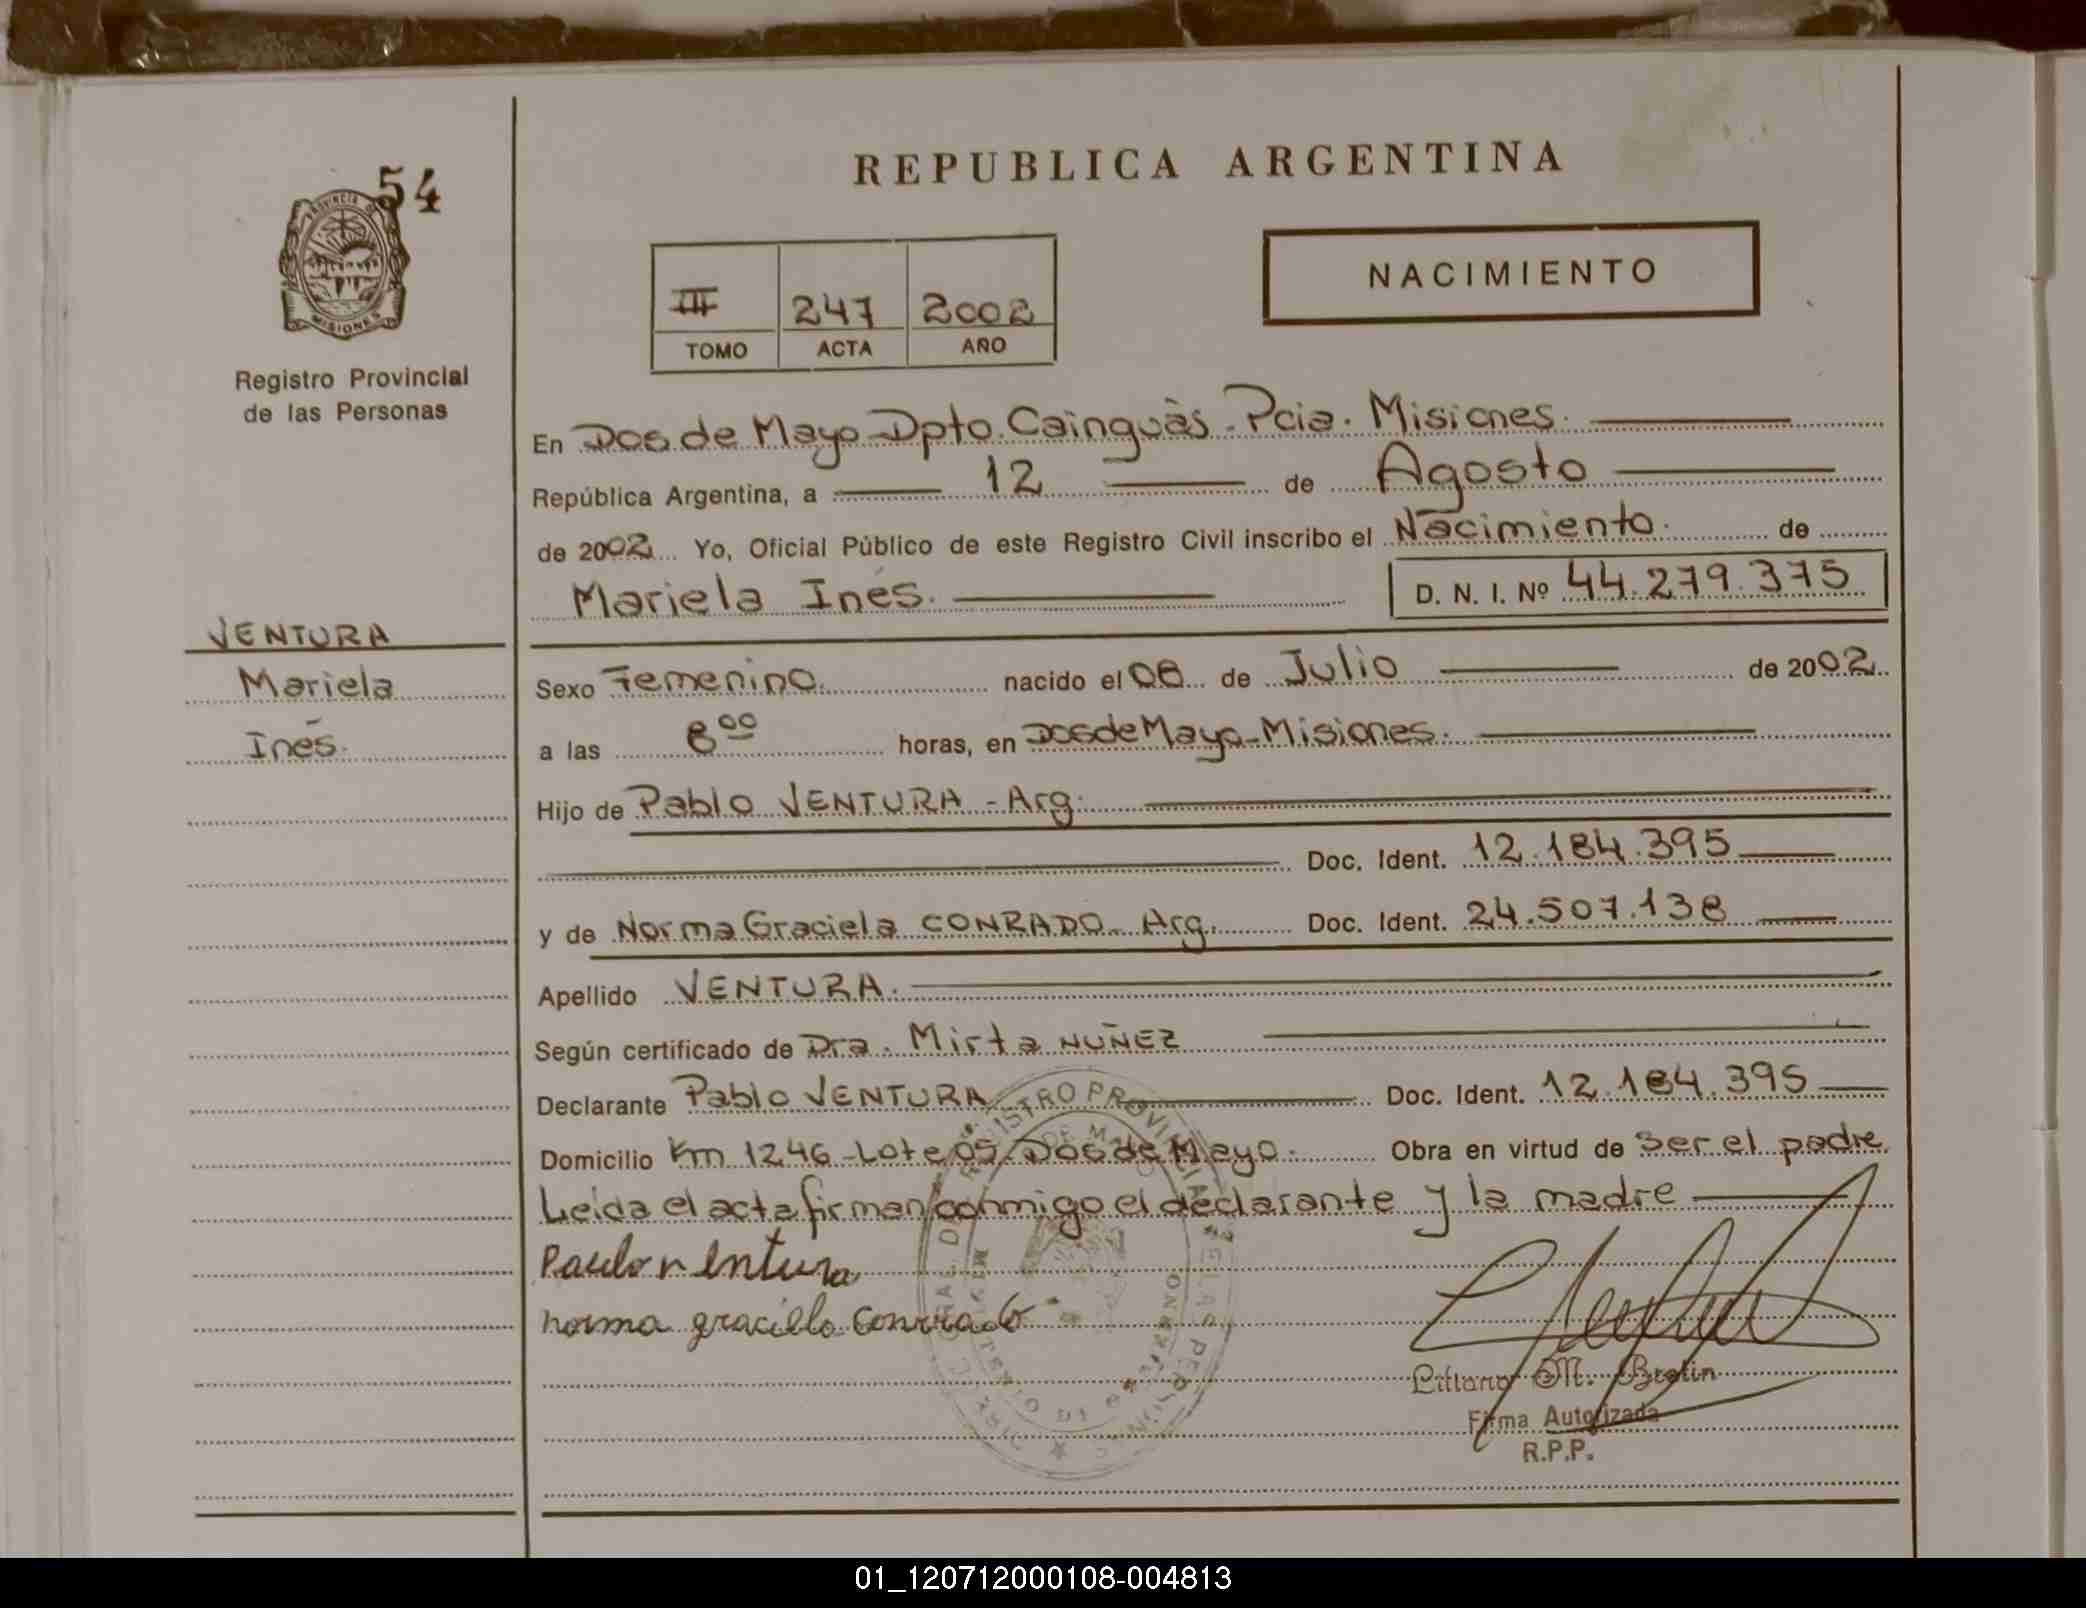 54
PROVINCIA DE
MISIONES
Registro Provincial
de las Personas
VENTURA
Mariela
Inés.
REPUBLICA ARGENTINA
III 247 2002
TOMO ACTA AÑO
NACIMIENTO
En Dos de Mayo - Dpto. Cainguàs - Pcia. Misiones.
República Argentina, a 12 de Agosto
de 2002 Yo, Oficial Público de este Registro Civil inscribo el Nacimiento. de
Mariela Inés. D. N. I. Nº 44.279.375
Sexo Femenino. nacido el 08 de Julio de 2002
a las 8⁰⁰ horas, en Dos de Mayo - Misiones.
Hijo de Pablo VENTURA - Arg.
Doc. Ident. 12.184.395
y de Norma Graciela CONRADO - Arg. Doc. Ident. 24.507.138
Apellido VENTURA.
Según certificado de Dra. Mirta NUÑEZ
Declarante Pablo VENTURA Doc. Ident. 12.184.395
Domicilio Km 1246 - Lote 05 - Dos de Mayo. Obra en virtud de ser el padre
Leída el acta firman conmigo el declarante y la madre
ventura
norma graciela conrado
M.
Firma Autorizada
R.P.P.
01_120712000108-004813